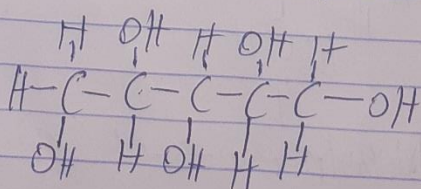 H OH H OH H
H-C-C-C-C-C-OH
OH H OH H H